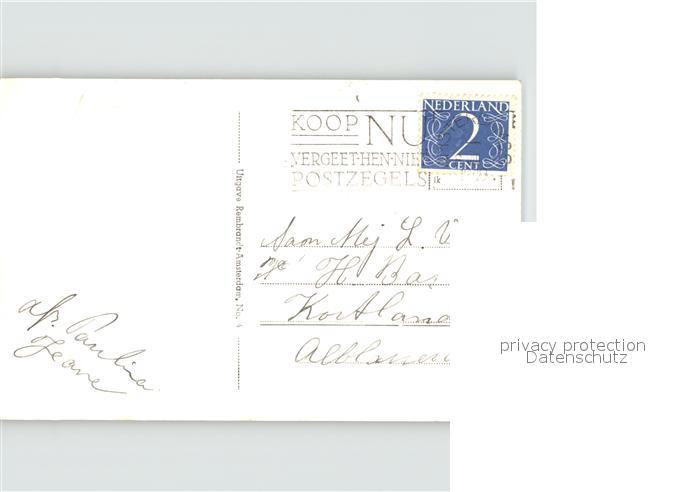 KOOP NU
VERGEET-HEN-NIE
POSTZEGELS
NEDERLAND
2
CENT
Uitgave Rembrandt-Amsterdam, No. 4
Aan Mej L. V
H. Bas
Kortland
Alblasser
afz. Paulina
Jeane
privacy protection
Datenschutz